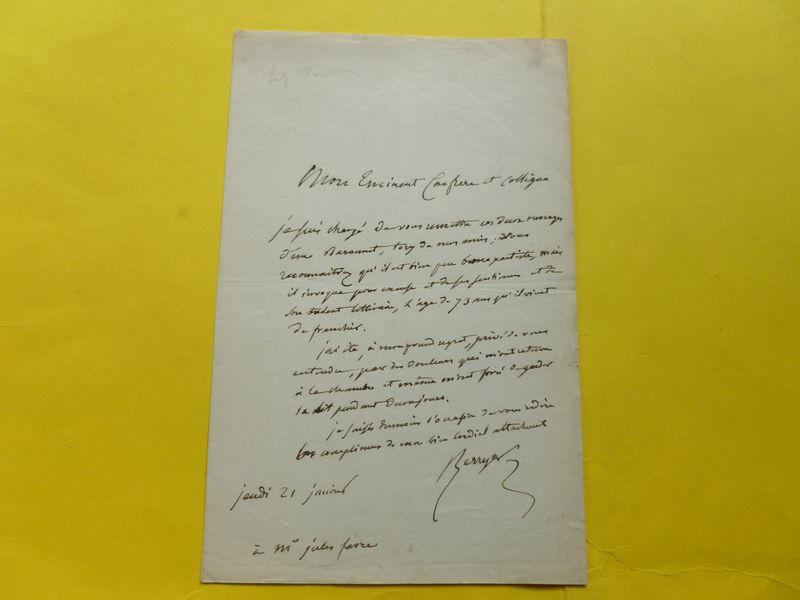 Mon Eminent Confrere et Collègue
je suis chargé de vous remettre ces deux ouvrages
d'un Baronnet, tory de mes amis; Vous
reconnaitrez qu'il est bien peu bonapartiste, mais
il invoque pour excuse et de ses opinions et de
son talent littéraire, l'âge de 73 ans qu'il vient
de franchir.
j'ai été, à mon grand regret, privé de vous
entendre, par des douleurs qui m'ont retenu
à la chambre et même m'ont forcé de garder
le lit pendant deux jours.
je saisis du moins l'occasion de vous redire
les complimens de mon bien cordial attachement
Berryer
jeudi 21 janvier
à Mr jules favre